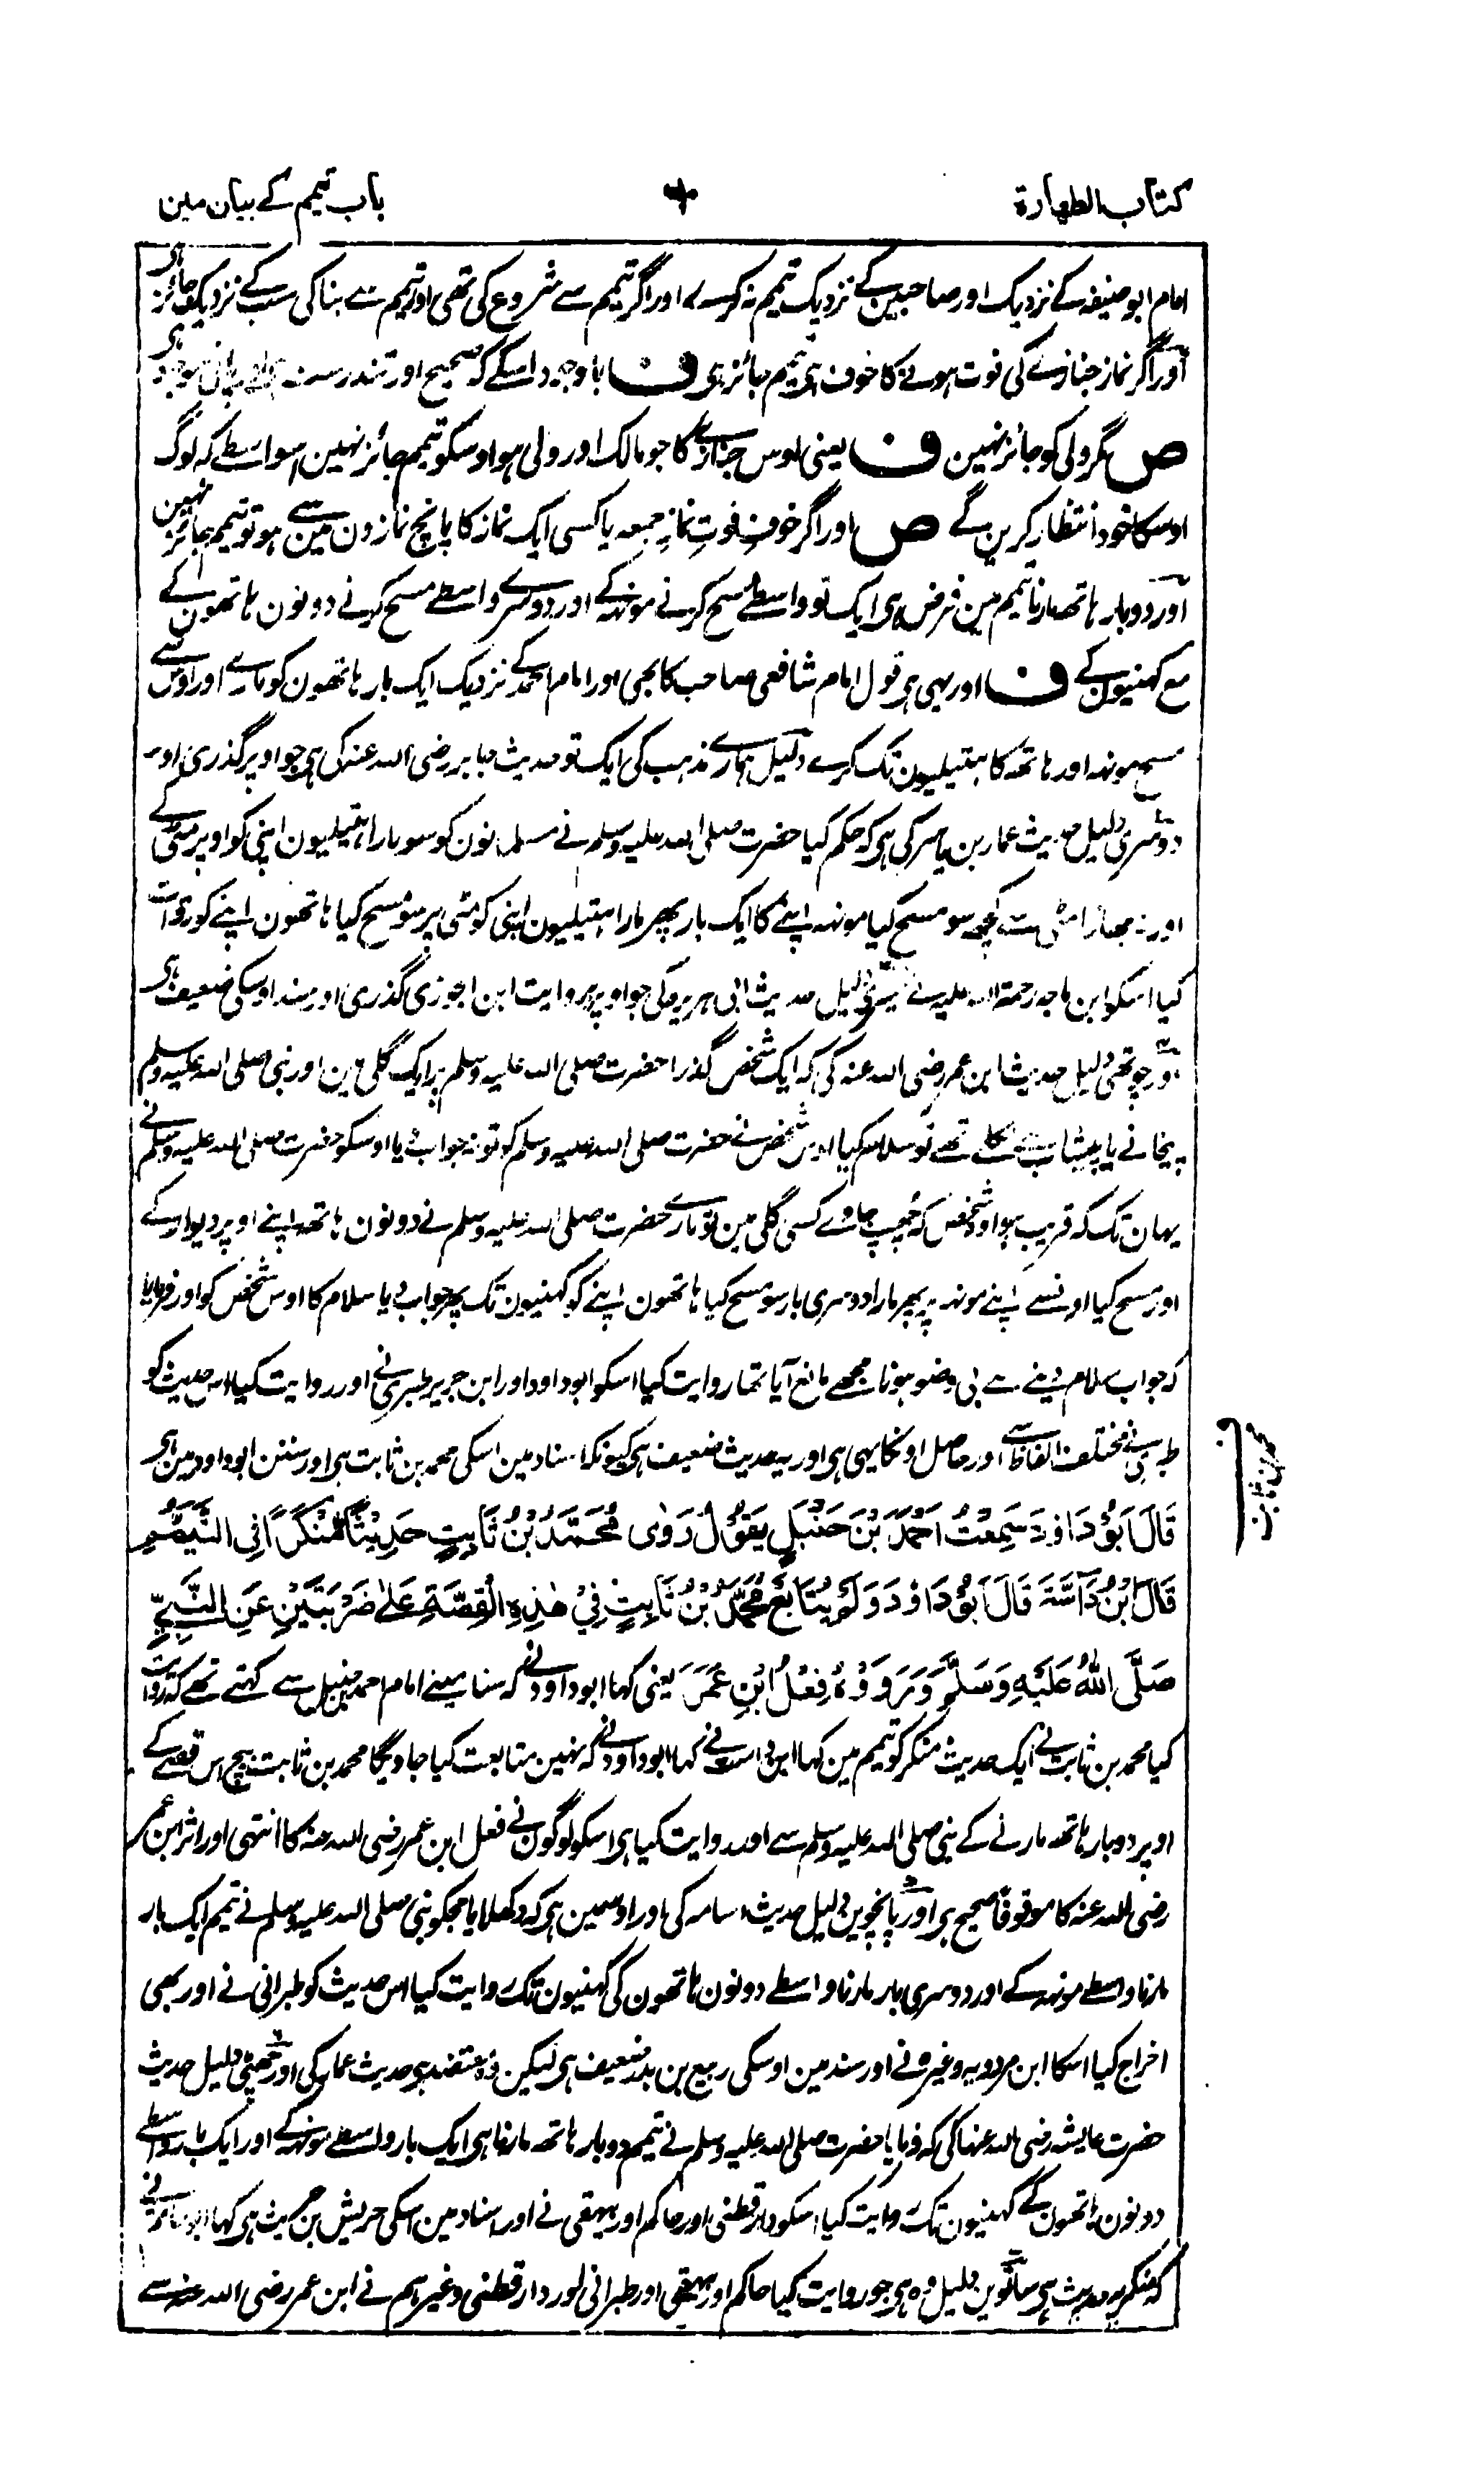 کتاب الطہارۃ
باب تیمم کے بیان مین
امام ابو حنیفہ کے نزدیک اور صاحبین کے نزدیک تیمم نہ کرے اور اگر تیمم سے شروع کی تھی اور تیمم سے بنا کی سب کے نزدیک جائز ہی
اور اگر نماز جنازے کی فوت ہونے کا خوف ہی تیمم جائز ہی ف باوجود اسکے کہ صحیح اور تندرست ہی اور پانی موجود ہی
ص مگر ولی کو جائز نہین ف یعنی اوس جنازے کا جو مالک اور ولی ہو اوسکو تیمم جائز نہین اسواسطے کہ لوگ
اوسکا خود انتظار کرین گے ص اور اگر خوف فوتِ نمازِ جمعہ یا کسی ایک نماز کا پانچ نمازون مین سے ہو تو تیمم جائز نہین
اور دوبار ہاتھ مارنا تیمم مین فرض ہی ایک تو واسطے مسح کرنے مونہہ کے اور دوسرے واسطے مسح کرنے دونون ہاتھون کے
مع کہنیون کے ف اور یہی ہی قول امام شافعی صاحب کا بھی اور امام احمد کے نزدیک ایک بار ہاتھون کو مارے اور اوس سے
مسح مونہہ اور ہاتھ کا ہتیلیون تک کرے دلیل ہمارے مذہب کی ایک تو حدیث جابر رضی اللہ عنہ کی ہی جو اوپر گذری اور
دوسری دلیل حدیث عمار بن یاسر کی ہی کہ حکم کیا حضرت صلی اللہ علیہ وسلم نے مسلمانون کو سو مارا ہتیلیون اپنی کو اوپر مٹی کے
اور نہ جھاڑا مٹی سے کچھ سو مسح کیا مونہہ اپنے کا ایک بار پھر مارا ہتیلیون اپنی کو مٹی پر سو مسح کیا ہاتھون اپنے کو روایت
کیا اسکو ابن ماجہ رحمۃ اللہ علیہ نے تیسری دلیل حدیث ابی ہریرہ کی جو اوپر بروایت ابن الجوزی گذری اور سند اوسکی ضعیف ہی
اور چوتھی دلیل حدیث ابن عمر رضی اللہ عنہ کی کہ ایک شخص گذرا حضرت صلی اللہ علیہ وسلم پر ایک گلی مین اور نبی صلی اللہ علیہ وسلم
پیخانے یا پیشاب سے نکلے تھے تو سلام کیا اوس شخص نے حضرت صلی اللہ علیہ وسلم کو تو نہ جواب دیا اوسکو حضرت صلی اللہ علیہ وسلم نے
یہان تک کہ قریب ہوا وہ شخص کہ چھپ جاوے کسی گلی مین تو مارے حضرت صلی اللہ علیہ وسلم نے دونون ہاتھ اپنے اوپر دیوار کے
اور مسح کیا اونسے اپنے مونہہ پر پھر مارا دوسری بار سو مسح کیا ہاتھون اپنے کو کہنیون تک پھر جواب دیا سلام کا اوس شخص کو اور فرمایا
کہ جواب سلام دینے سے بی وضو ہونا مجھے مانع آیا تھا روایت کیا اسکو ابو داود اور ابن جریر طبری نے اور روایت کیا اس حدیث کو
طبری نے مختلف الفاظ سے اور حاصل اونکا یہی ہی اور یہ حدیث ضعیف ہی کیونکہ اسناد مین اسکی محمد بن ثابت ہی اور سنن ابو داود مین ہی
قَالَ اَبُوْ دَاوٗدَ سَمِعْتُ اَحْمَدَ بْنَ حَنْبَلٍ يَقُوْلُ رَوٰى مُحَمَّدُ بْنُ ثَابِتٍ حَدِيْثًا مُّنْكَرًا فِي التَّيَمُّمِ
قَالَ ابْنُ دَاسَّةَ قَالَ اَبُوْ دَاوٗدَ وَلَمْ يُتَابَعْ مُحَمَّدُ بْنُ ثَابِتٍ فِيْ هٰذِهِ الْقِصَّةِ عَلٰى ضَرْبَتَيْنِ عَنِ النَّبِيِّ
صَلَّى اللّٰهُ عَلَيْهِ وَسَلَّمَ وَرَوَوْهُ فِعْلَ ابْنِ عُمَرَ یعنی کہا ابو داود نے کہ سنا مینے امام احمد حنبل سے کہتے تھے کہ روایت
کیا محمد بن ثابت نے ایک حدیث منکر کو تیمم مین کہا ابن داسہ نے کہا ابو داود نے کہ نہین متابعت کیا جاویگا محمد بن ثابت بیچ اس قصے کے
اوپر دوبار ہاتھ مارنے کے نبی صلی اللہ علیہ وسلم سے اور روایت کیا ہی اسکو لوگون نے فعل ابن عمر رضی اللہ عنہ کا انتہی اور اثر ابن عمر
رضی اللہ عنہ کا موقوفا صحیح ہی اور پانچوین دلیل حدیث اسامہ کی ہی اور اوسمین ہی کہ دکھلایا مجکو نبی صلی اللہ علیہ وسلم نے تیمم ایک بار
مارنا واسطے مونہہ کے اور دوسری بار مارنا واسطے دونون ہاتھون کی کہنیون تک روایت کیا اس حدیث کو طبرانی نے اور بھی
اخراج کیا اسکا ابن مردویہ وغیرہ نے اور سند مین اوسکی ربیع بن بدر ضعیف ہی لیکن وہ معتضد ہی حدیث عمار کی اور چھٹی دلیل حدیث
حضرت عایشہ رضی اللہ عنہا کی کہ فرمایا حضرت صلی اللہ علیہ وسلم نے تیمم دوبار ہاتھ مارنا ہی ایک بار واسطے مونہہ کے اور ایک بار واسطے
دونون ہاتھون کے کہنیون تک روایت کیا اسکو دارقطنی اور حاکم اور بیہقی نے اور اسناد مین اسکی حریش بن خریث ہی کہا ابو حاتم نے
کہ منکر یہ حدیث ہی ساتوین دلیل وہ ہی جو روایت کیا حاکم اور بیہقی اور طبرانی اور دارقطنی وغیرہم نے ابن عمر رضی اللہ عنہ سے
محمد بن ثابت